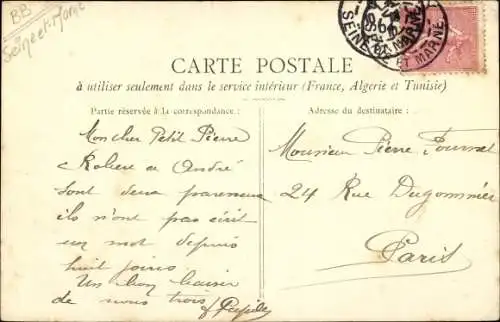 BB
Seine et Marne
SEINE ET MARNE
CARTE POSTALE
à utiliser seulement dans le service intérieur (France, Algerie et Tunisie)
Partie réservée à la correspondance :
Mon cher Petit Pierre
Robert et André
sont deux paresseux
ils n'ont pas écrit
un mot depuis
huit jours
Un bon baiser
de nous trois
Adresse du destinataire :
Monsieur Pierre Fournet
24 Rue Dugommier
Paris